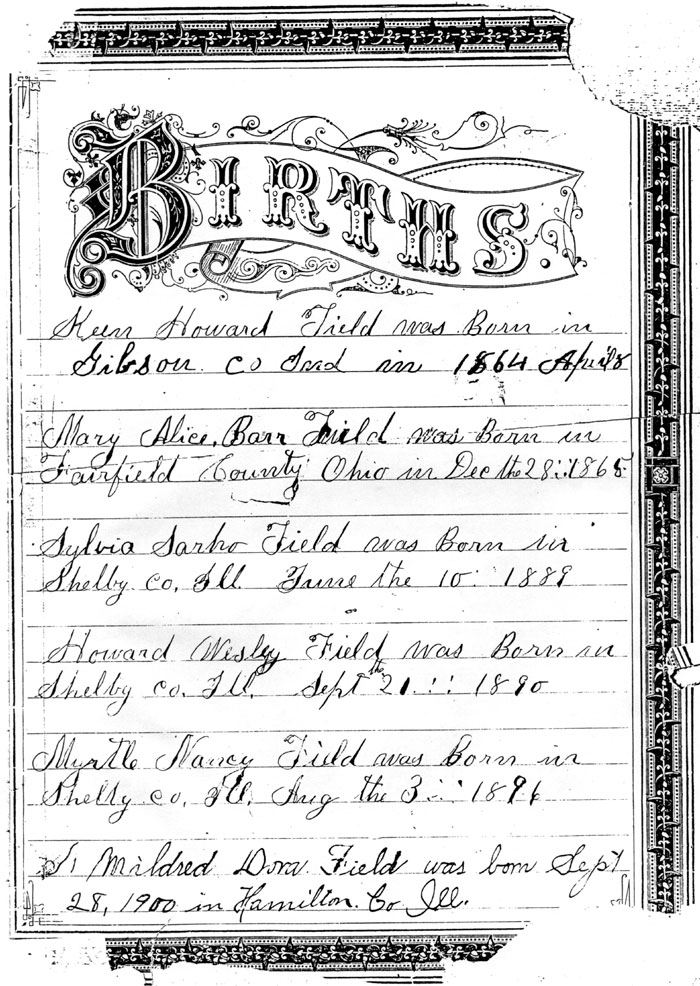 BIRTHS.
Keen Howard Field was Born in
Gibson co Ind in 1864 April 8
Mary Alice, Barr Field was Born in
Fairfield County Ohio in Dec the 28 1865
Sylvia Field was Born in
Shelby co, Ill. June the 10 1889
Howard Wesley Field was Born in
Shelby co, Ill. Sept 21 th 1890
Myrtle Nancy Field was Born in
Shelby co, Ill, Aug the 3 1896
Mildred Dora Field was born Sept
28, 1900 in Hamilton. Co Ill.